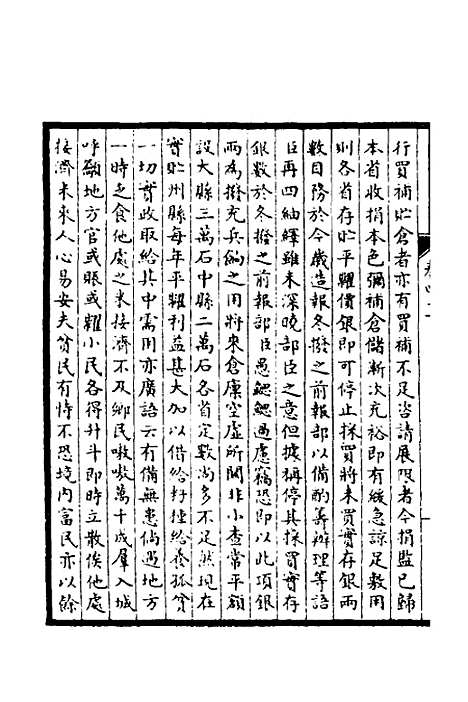 行買補貯倉者亦有買補不足咨請展限者今捐監已歸
本省收捐本色彌補倉儲漸次充裕即有緩急諒足敷用
則各省存貯平糶價銀即可停止採買將未買實存銀兩
數目務於今歲造報冬撥之前報部以備酌籌辦理等語
臣再四紬繹雖未深曉部臣之意但據稱停其採買實存
銀數於冬撥之前報部臣愚鰓鰓過慮竊恐即以此項銀
兩為撥充兵餉之用將來倉廩空虛所關非小查常平額
設大縣三萬石中縣二萬石各省定數尚多不足然現在
實貯州縣每年平糶利益甚大加以借給籽種給養孤貧
一切實政取給其中需用亦廣語云有備無患倘遇地方
一時乏食他處之米接濟不及鄉民嗷嗷萬十成羣入城
呼籲地方官或賑或糶小民各得升斗即時立散俟他處
接濟米來人心易安夫貧民有恃不恐境内富民亦以餘